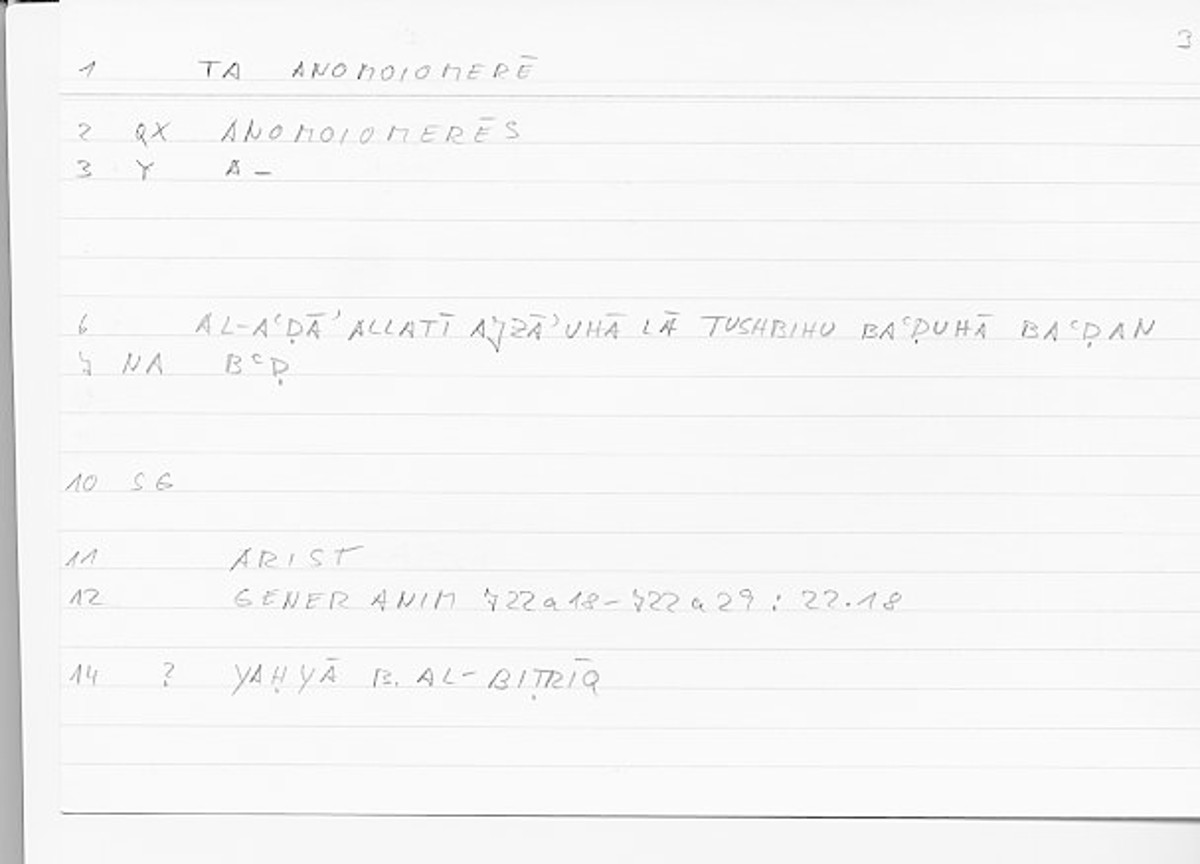 3
1 TA ANOMOIOMERĒ
2 QX ANOMOIOMERĒS
3 Y A –
6 AL-AʿḌĀʾ ALLATĪ AJZĀʾUHĀ LĀ TUSHBIHU BAʿḌUHĀ BAʿḌAN
7 NA BʿḌ
10 SG
11 ARIST
12 GENER ANIM 722a18–722a29 : 22.18
14 ? YAḤYĀ B. AL-BIṬRĪQ